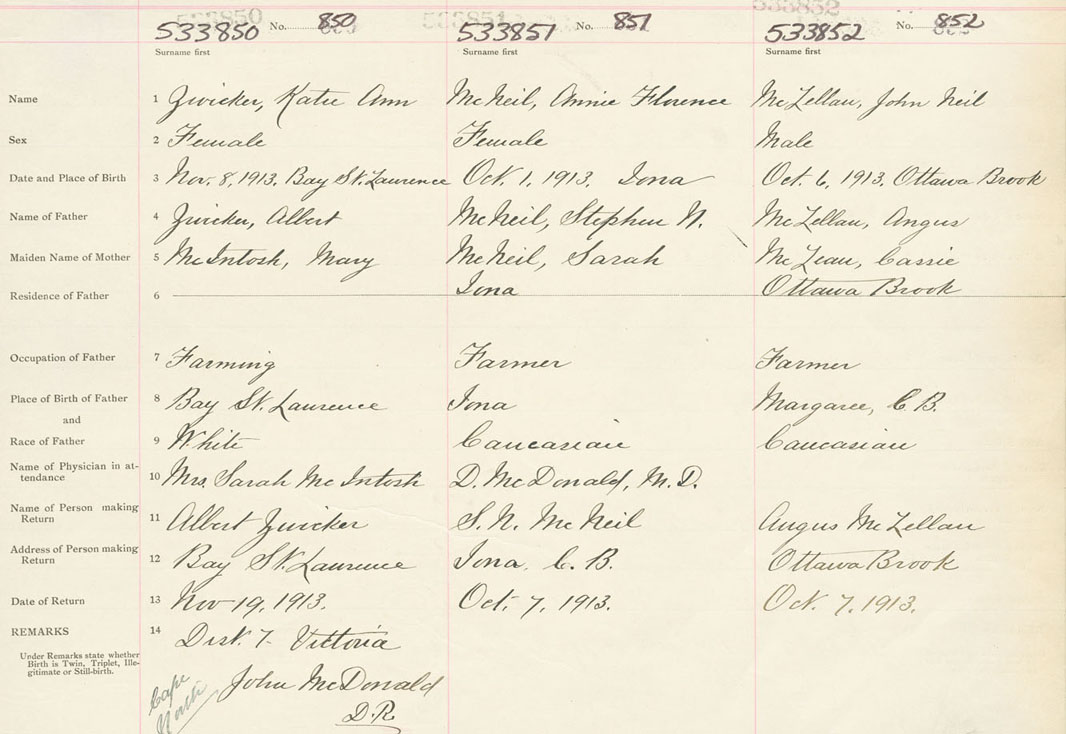 533850 No. 850 533851 No. 851 533852 No. 852
Surname first Surname first Surname first
Name 1 Zwicker, Katie Ann McNeil, Annie Florence McLellan, John Neil
Sex 2 Female Female Male
Date and Place of Birth 3 Nov. 8, 1913. Bay St. Laurence Oct. 1, 1913. Iona Oct. 6, 1913. Ottawa Brook
Name of Father 4 Zwicker, Albert McNeil, Stephen N. McLellan, Angus
Maiden Name of Mother 5 McIntosh, Mary McNeil, Sarah McLean, Cassie
Residence of Father 6 Iona Ottawa Brook
Occupation of Father 7 Farming Farmer Farmer
Place of Birth of Father 8 Bay St. Laurence Iona Margaree, C.B.
and
Race of Father 9 White Caucasian Caucasian
Name of Physician in at-
tendance 10 Mrs. Sarah McIntosh D. McDonald, M.D.
Name of Person making
Return 11 Albert Zwicker S. N. McNeil Angus McLellan
Address of Person making
Return 12 Bay St. Laurence Iona, C.B. Ottawa Brook
Date of Return 13 Nov 19, 1913. Oct. 7, 1913. Oct. 7, 1913.
REMARKS 14 Dist. 7 - Victoria
Under Remarks state whether
Birth is Twin, Triplet, Ille-
gitimate or Still-birth.
John McDonald
D.R.
Cape
North